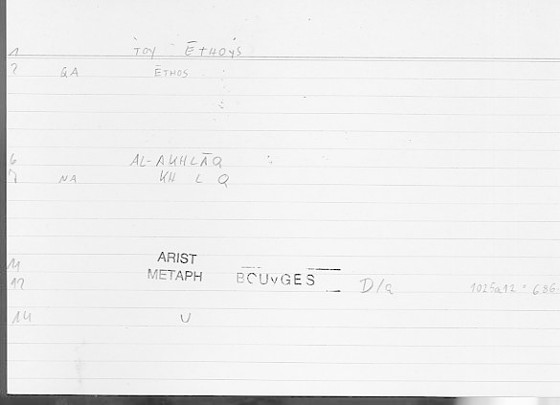 1 TOY ĒTHOYS
2 GA ĒTHOS :
:
6 AL-AKHLĀQ :
7 NA KH L Q
11 ARIST
12 METAPH BOUvGES D/a 1025a12 : 686
14 U